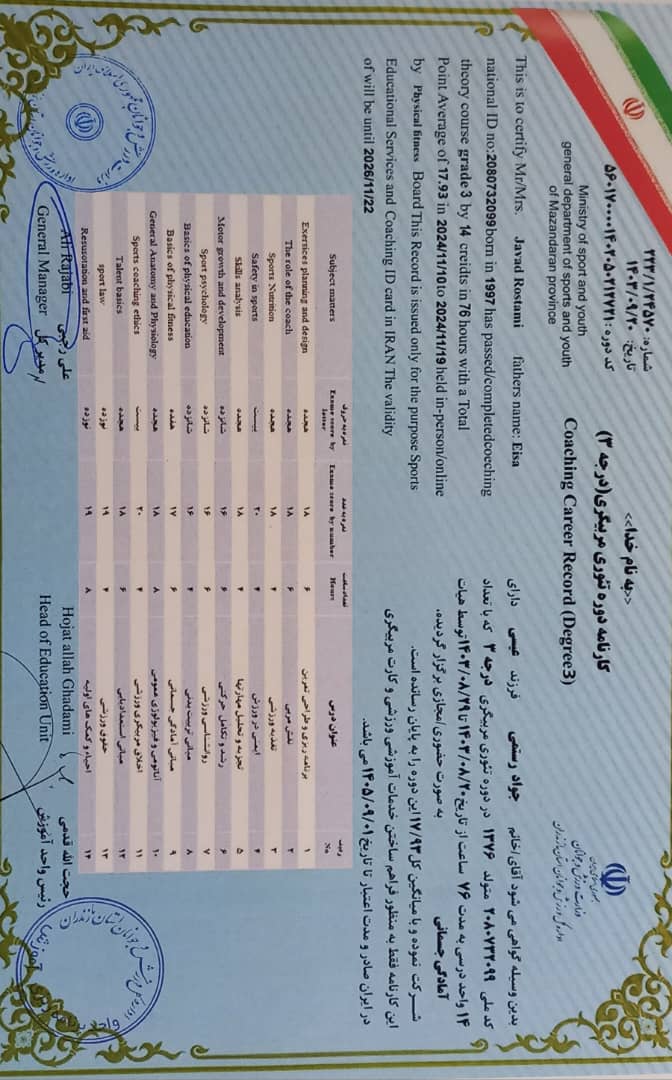 <<به نام خدا>>
کارنامه دوره تئوری مربیگری(درجه ۳)
Coaching Career Record (Degree3)
شماره: ۲۲۳/۱/۲۴۵۷۰
تاریخ: ۱۴۰۳/۰۹/۲۰
کد دوره : ۵۶۰۱۷۰۰۰۰۱۴۰۳۰۵۰۲۱۳۷۲۱
Ministry of sport and youth
general department of sports and youth
of Mazandaran province
جمهوری اسلامی ایران
وزارت ورزش و جوانان
اداره کل ورزش و جوانان استان مازندران
This is to certify Mr/Mrs. Javad Rostami fathers name: Eisa
national ID no:2080732099born in 1997 has passed/completedcoeching
theory course grade 3 by 14 creidts in 76 hours with a Total
Point Average of 17.93 in 2024/11/10to 2024/11/19 held in-person/online
by Physical fitness Board This Record is issued only for the purpose Sports
Educational Services and Coaching ID card in IRAN The validity
of will be until 2026/11/22
بدین وسیله گواهی می شود آقای/خانم جواد رستمی فرزند عیسی دارای
کد ملی ۲۰۸۰۷۳۲۰۹۹ متولد ۱۳۷۶ در دوره تئوری مربیگری درجه ۳ که با تعداد
۱۴ واحد درسی به مدت ۷۶ ساعت از تاریخ ۱۴۰۳/۰۸/۲۰ تا ۱۴۰۳/۰۸/۲۹ توسط هیات
آمادگی جسمانی به صورت حضوری/مجازی برگزار گردیده،
شرکت نموده و با میانگین کل ۱۷/۹۳ این دوره را به پایان رسانده است.
این کارنامه فقط به منظور فراهم ساختن خدمات آموزشی ورزشی و کارت مربیگری
در ایران صادر و مدت اعتبار تا تاریخ ۱۴۰۵/۰۹/۰۱ می باشد.
Subject matters نمره به حروف Exame score by letter نمره به عدد Exame score by number تعداد ساعت Hours عنوان درس ردیف No
Exercices planning and design هجده ۱۸ ۶ برنامه ریزی و طراحی تمرین ۱
The role of the coach هجده ۱۸ ۶ نقش مربی ۲
Sports Nutrition هجده ۱۸ ۴ تغذیه ورزشی ۳
Safety in sports بیست ۲۰ ۴ ایمنی در ورزش ۴
Skills analysis هجده ۱۸ ۴ تجزیه و تحلیل مهارتها ۵
Motor growth and development شانزده ۱۶ ۶ رشد و تکامل حرکتی ۶
Sport psychology شانزده ۱۶ ۶ روانشناسی ورزشی ۷
Basics of physical education شانزده ۱۶ ۴ مبانی تربیت بدنی ۸
Basics of physical fitness هفده ۱۷ ۶ مبانی آمادگی جسمانی ۹
General Anatomy and Physiology هجده ۱۸ ۸ آناتومی و فیزیولوژی عمومی ۱۰
Sports coaching ethics بیست ۲۰ ۴ اخلاق مربیگری ورزشی ۱۱
Talent basics هجده ۱۸ ۶ مبانی استعدادیابی ۱۲
sport law نوزده ۱۹ ۴ حقوق ورزشی ۱۳
Resuscitation and first aid نوزده ۱۹ ۸ احیا و کمک های اولیه ۱۴
Ali Rajabi علی رجبی
General Manager مدیر کل
Hojat allah Ghadami حجت الله قدمی
Head of Education Unit رئیس واحد آموزش